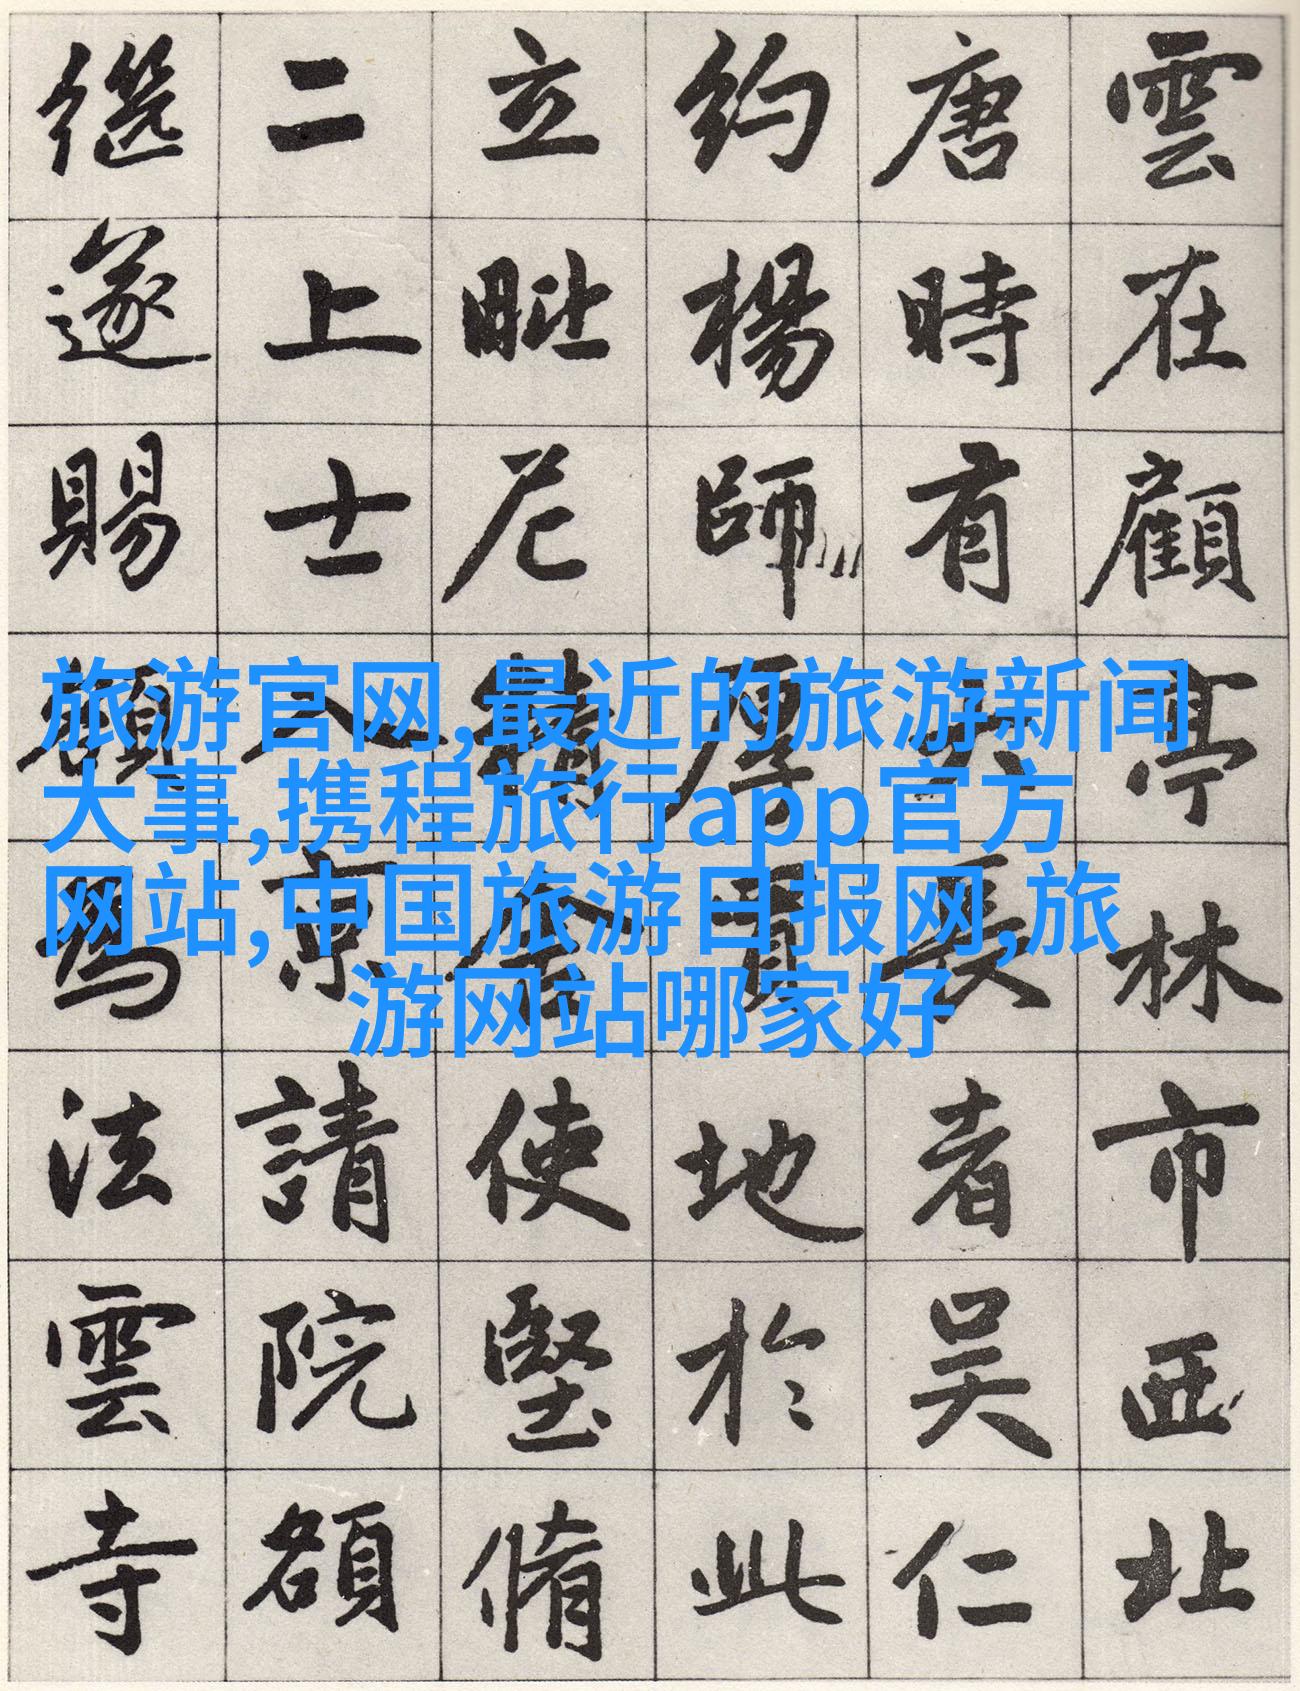 雲在顧亭林市西北
唐時有大長者吳仁
約楊師厚地於此
立毗尼舍使堅脩
二上士入京請院額
繼遂賜額為法雲寺
旅游官网,最近的旅游新闻
大事,携程旅行app官方
网站,中国旅游日报网,旅
游网站哪家好